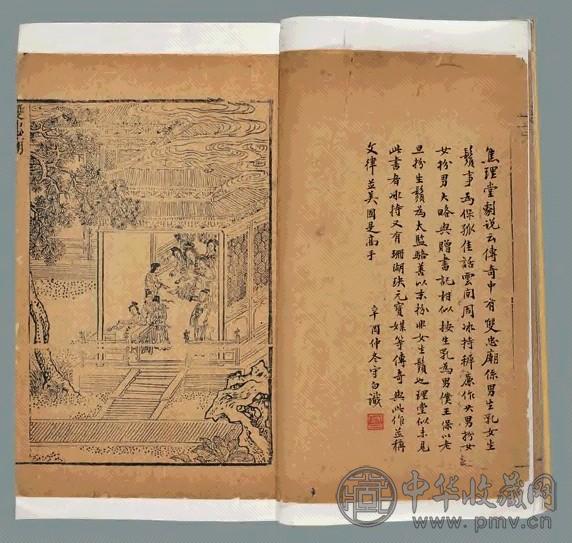 焦理堂劇說云傳奇中有雙忠廟係男生乳女生
鬚事為保孤佳話雲間周冰持稺廉作男扮女
女扮男大略與贈書記相似按生乳為男僕王保以老
旦扮生鬚為太監駱善以末扮非女生鬚也理堂似未見
此書者冰持又有珊瑚玦元寶媒等傳奇與此作並稱
文律並美固是高手
辛酉仲冬守白識
雙忠廟
中华收藏网
www.pmv.cn